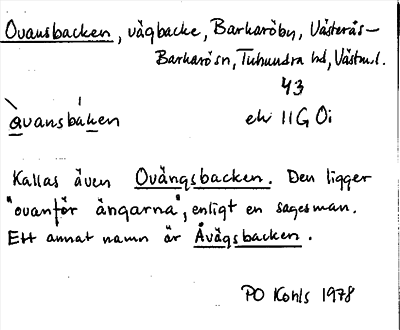 Ovansbacken, vägbacke, Barkaröby, Västerås-
Barkarösn, Tuhundra hd, Västml.
43
ek 11G 0i
òvansbáken
Kallas även Ovängsbacken. Den ligger
"ovanför ängarna", enligt en sagesman.
Ett annat namn är Åvägsbacken.
PO Kohls 1978